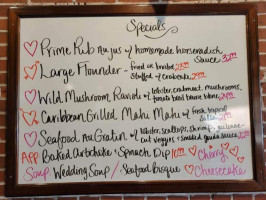 Specials
Prime Rib Au jus w/ homemade horseradish
Sauce
Large Flounder - fried or broiled
Stuffed w/ crabcake
Wild Mushroom Ravioli w/ lobster, mushrooms,
tomato basil
Caribbean Grilled Mahi Mahi w/ fresh tropical
Salsa
Seafood Au Gratin w/ lobster, scallops, shrimp,
cut veggies + smoked gouda sauce
APP Baked Artichoke + Spinach Dip Cherry
Soup Wedding Soup / Seafood Bisque Cheesecake